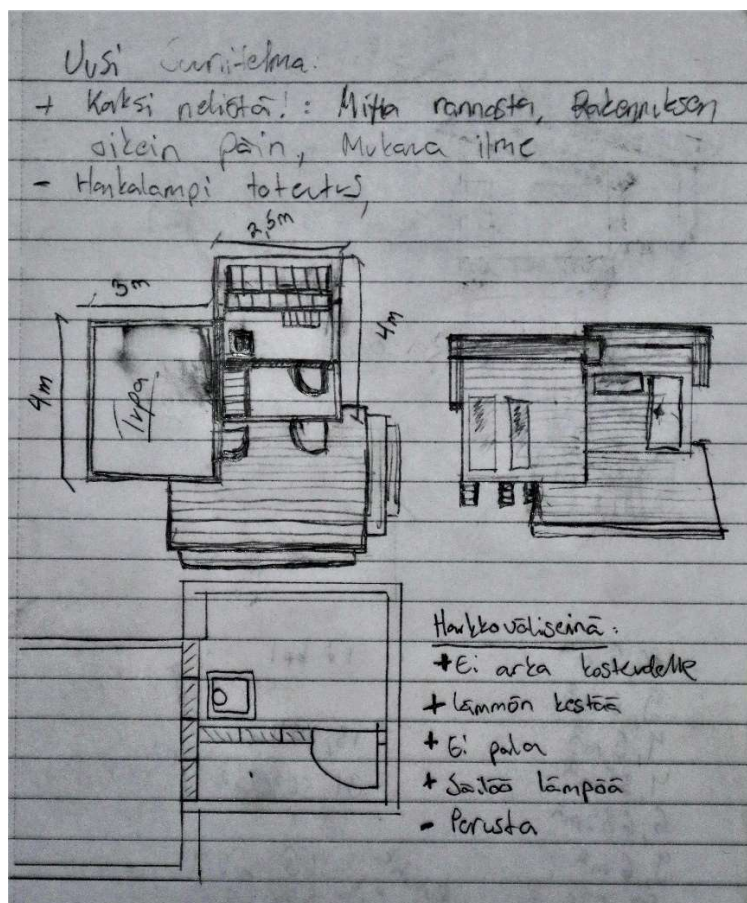 Uusi Suunitelma:
+ Kaksi neliötä! : Mitta rannasta, Rakennuksen
oikein päin, Mukava ilme
- Hankalampi toteutus
2,5m
3m
4m
4m
Tupa
Harkkoväliseinä:
+ Ei arka kosteudelle
+ Lämmön kestää
+ Ei pala
+ Säilöö lämpöä
- Perusta